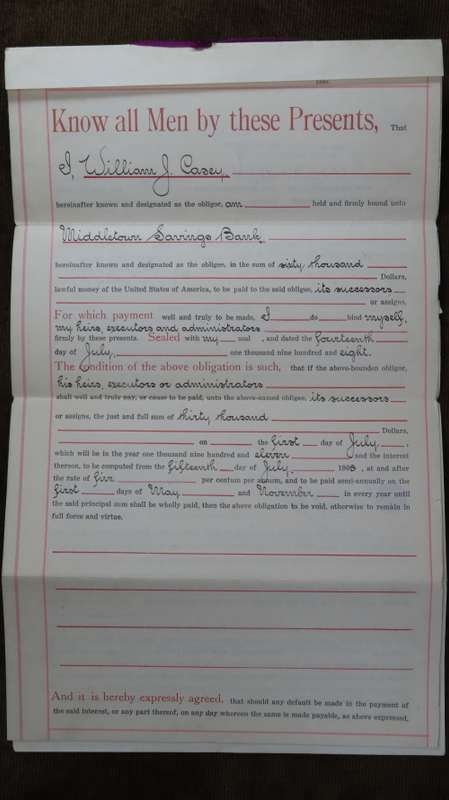 Know all Men by these Presents, That
I, William J. Casey,
hereinafter known and designated as the obligor, am held and firmly bound unto
Middletown Savings Bank
hereinafter known and designated as the obligee, in the sum of sixty thousand
Dollars,
lawful money of the United States of America, to be paid to the said obligee, its successors
or assigns,
For which payment well and truly to be made, I do bind myself,
my heirs, executors and administrators
firmly by these presents. Sealed with my seal , and dated the fourteenth
day of July, one thousand nine hundred and eight.
The condition of the above obligation is such, that if the above-bounden obligor,
his heirs, executors or administrators
shall well and truly pay, or cause to be paid, unto the above-named obligee, its successors
or assigns, the just and full sum of thirty thousand
Dollars,
on the first day of July ,
which will be in the year one thousand nine hundred and eleven and the interest
thereon, to be computed from the fifteenth day of July, 1908 , at and after
the rate of five per centum per annum, and to be paid semi-annually on the
first days of May and November in every year until
the said principal sum shall be wholly paid, then the above obligation to be void, otherwise to remain in
full force and virtue.
And it is hereby expressly agreed, that should any default be made in the payment of
the said interest, or any part thereof, on any day whereon the same is made payable, as above expressed,